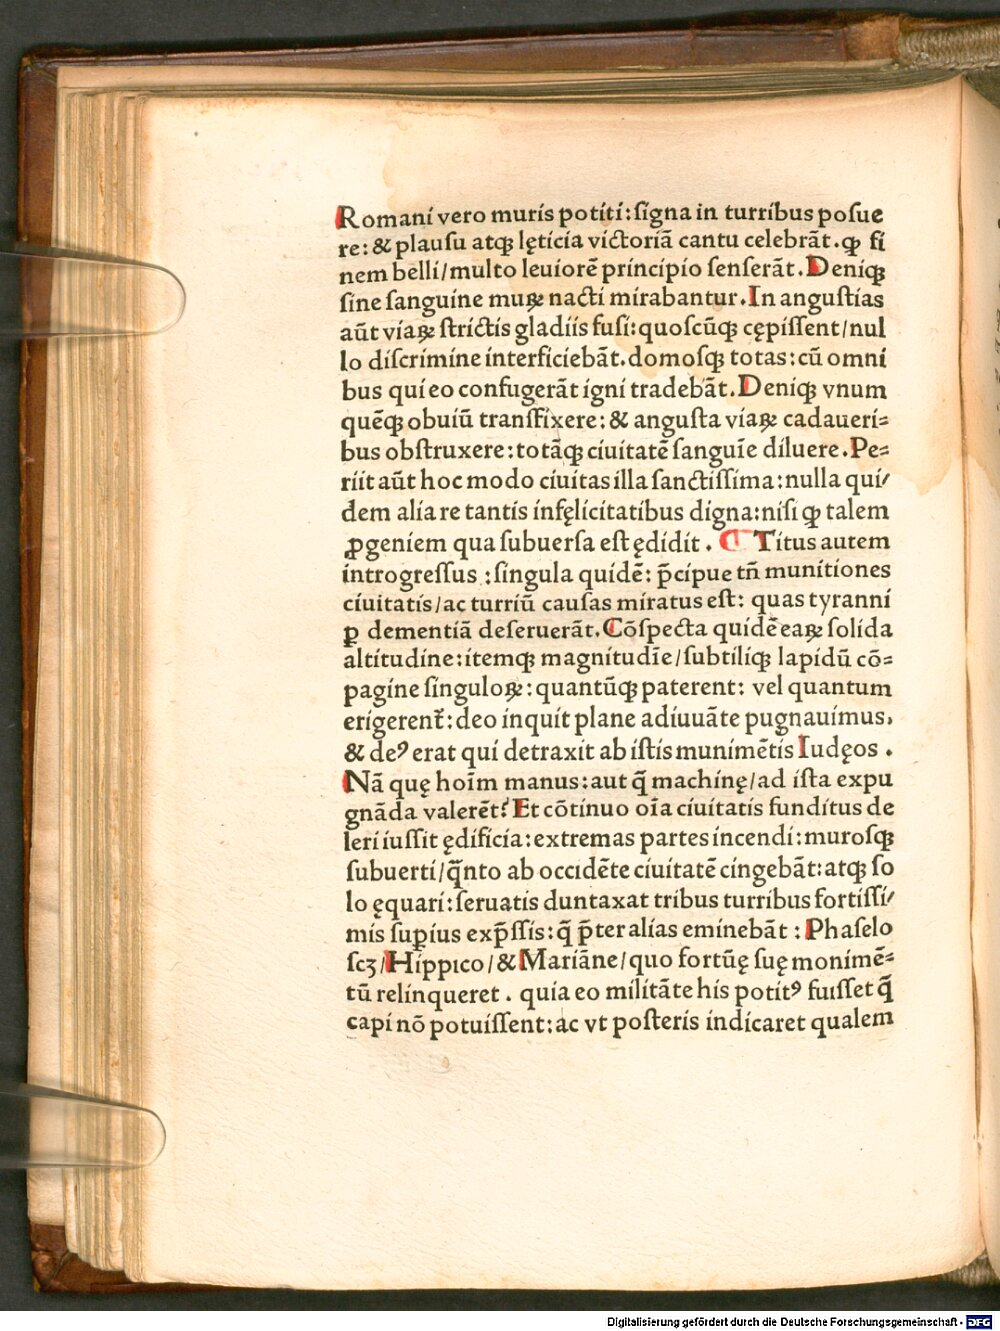 Romani vero muris potiti:ſigna in turribus poſue
re:& plauſu atqꝫ lęticia victoriā cantu celebrāt.ꝙ fi
nem belli/multo leuiorē principio ſenſerāt.Deniqꝫ
ſine ſanguine muꝝ nacti mirabantur.In anguſtias
aūt viaꝝ ſtrictis gladiis fuſi:quoſcūqꝫ cępiſſent/nul
lo diſcrimine interficiebāt.domoſqꝫ totas:cū omni
bus qui eo confugerāt igni tradebāt.Deniqꝫ vnum
quēqꝫ obuiū tranſfixere:& anguſta viaꝝ cadaueri⸗
bus obſtruxere:totāqꝫ ciuitatē ſanguīe diluere.Pe⸗
riit aūt hoc modo ciuitas illa ſanctiſſima:nulla qui/
dem alia re tantis infęlicitatibus digna:niſi ꝙ talem
ꝓgeniem qua ſubuerſa eſt ędidit. ¶ Titus autem
introgreſſus :ſingula quidē: p̄cipue tn̄ munitiones
ciuitatis/ac turriū cauſas miratus eſt: quas tyranni
ꝑ dementiā deſeruerāt.Cōſpecta quidē eaꝝ ſolida
altitudine:itemqꝫ magnitudīe/ſubtiliqꝫ lapidū cō⸗
pagine ſinguloꝝ:quantūqꝫ paterent: vel quantum
erigerent̄:deo inquit plane adiuuāte pugnauimus,
& deꝰ erat qui detraxit ab iſtis munimētis Iudęos .
Nā quę hoīm manus:aut q̄ machinę/ad iſta expu
gnāda valerēt? Et cōtinuo oīa ciuitatis funditus de
leri iuſſit ędificia:extremas partes incendi:muroſqꝫ
ſubuerti/q̄nto ab occidēte ciuitatē cingebāt:atqꝫ ſo
lo ęquari:ſeruatis duntaxat tribus turribus fortiſſi/
mis ſup̄ius exp̄ſſis:q̄ p̄ter alias eminebāt : Phaſelo
ſcꝫ/Hippico/&Mariāne/quo fortūę ſuę monimē⸗
tū relinqueret . quia eo militāte his potitꝰ fuiſſet q̄
capi nō potuiſſent:ac vt poſteris indicaret qualem
Digitalisierung gefördert durch die Deutsche Forschungsgemeinschaft - DFG